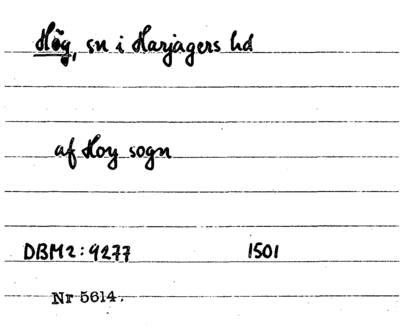 Hög, sn i Harjagers hd
af Hoy sogn
DBM2:9277 1501
Nr 5614.